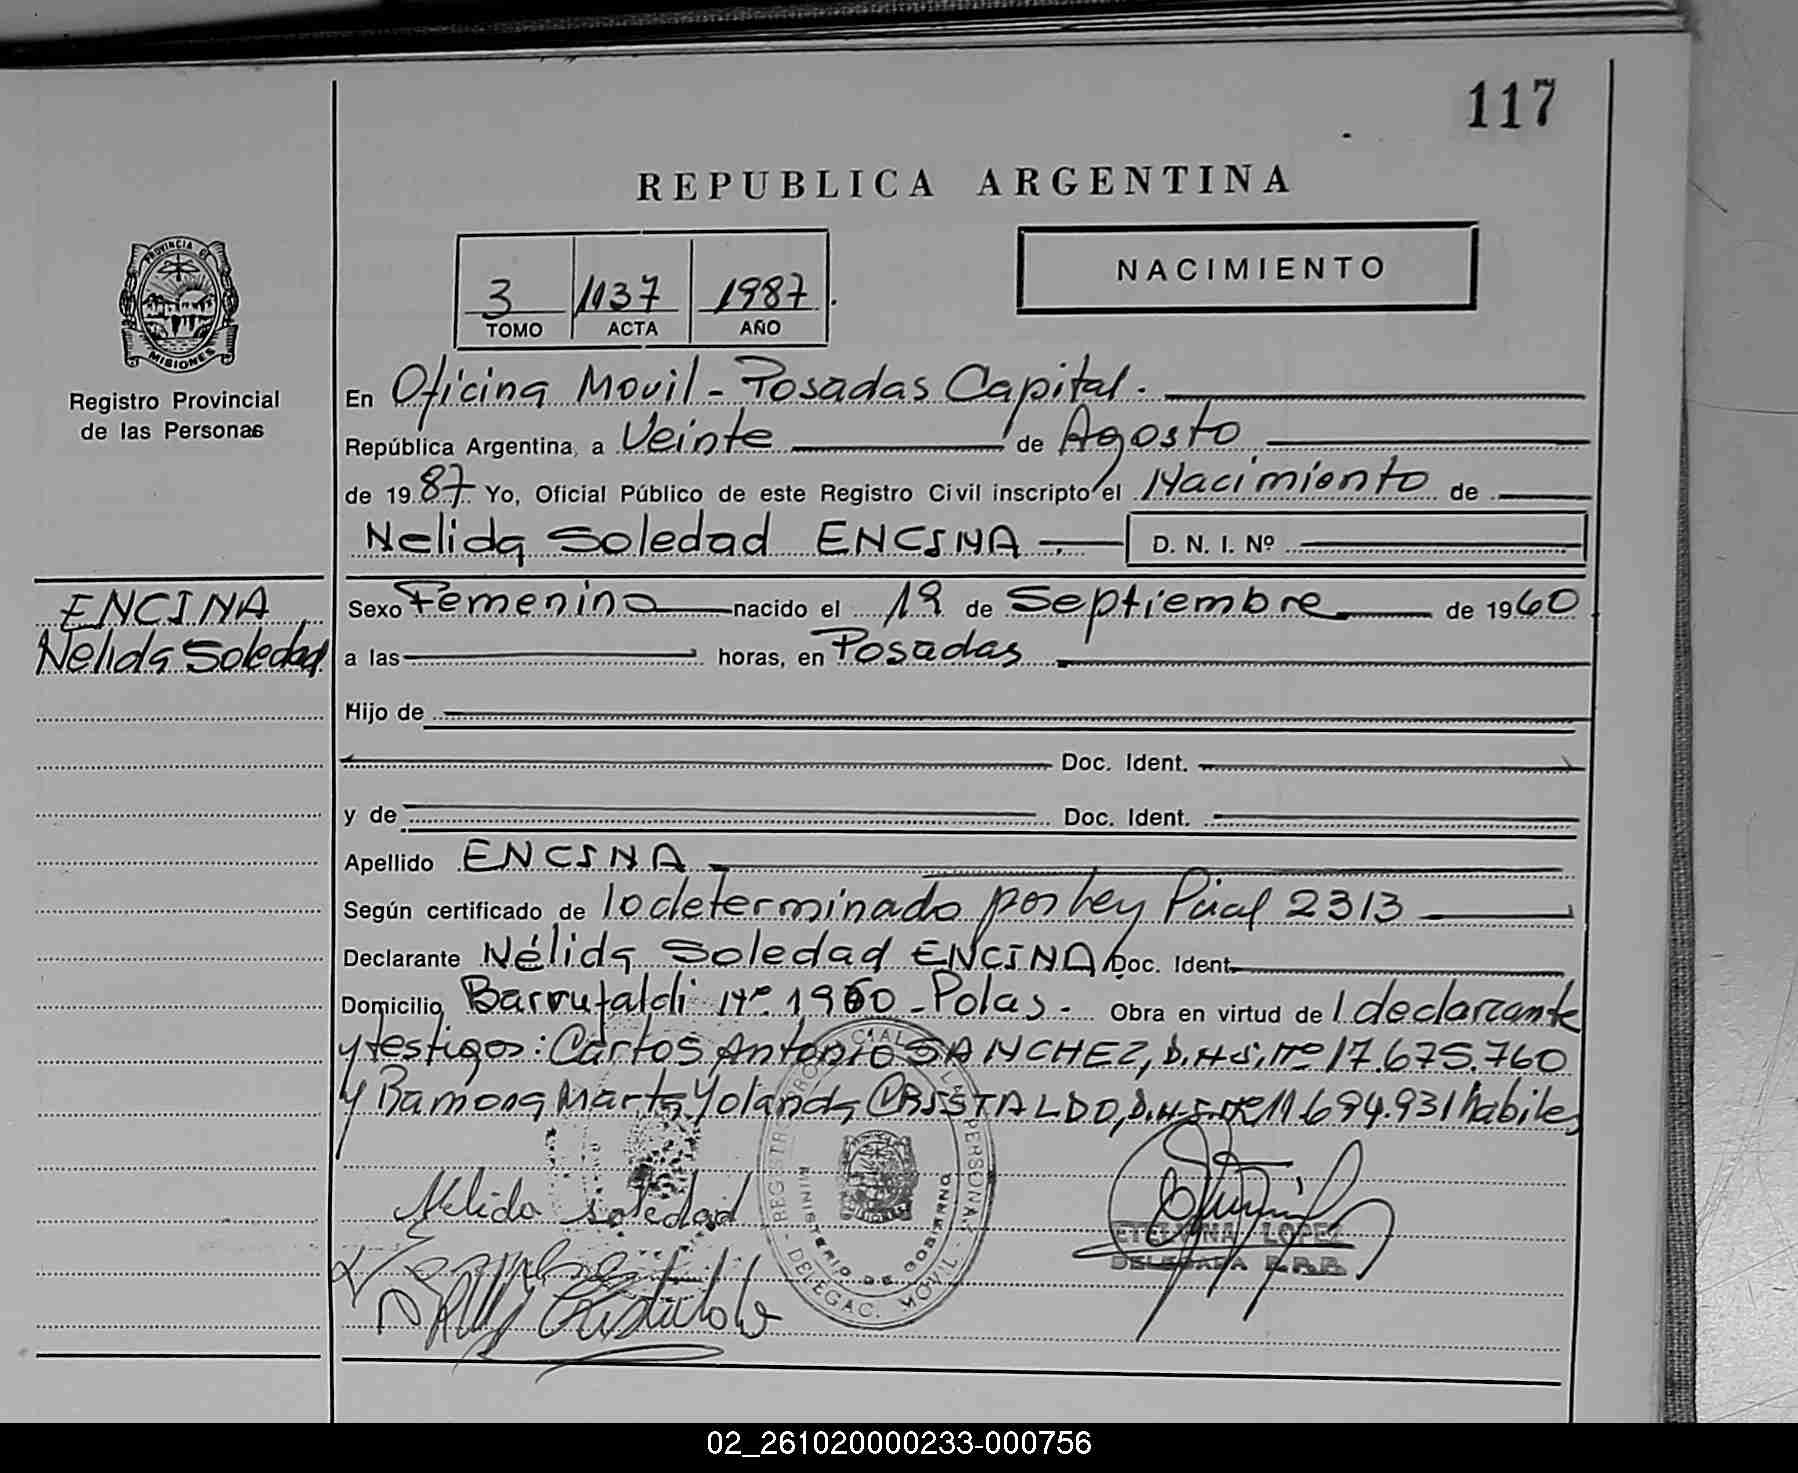 117
REPUBLICA ARGENTINA
PROVINCIA DE
MISIONES
Registro Provincial
de las Personas
3 1137 1987
TOMO ACTA AÑO
NACIMIENTO
En Oficina Movil - Posadas Capital.
República Argentina, a Veinte de Agosto
de 1987 Yo, Oficial Público de este Registro Civil inscripto el Nacimiento de
Nelida Soledad ENCINA D. N. I. Nº
ENCINA
Nelida Soledad
Sexo Femenino nacido el 19 de Septiembre de 1960
a las horas, en Posadas
Hijo de
Doc. Ident.
y de Doc. Ident.
Apellido ENCINA
Según certificado de lo determinado por Ley Pcial 2313
Declarante Nélida Soledad ENCINA Doc. Ident.
Domicilio Barrufaldi Nº 1960 - Pdas. Obra en virtud de l declarante
y testigos: Carlos Antonio SANCHEZ, D.N.I. Nº 17.675.760
y Ramona Marta Yolanda CRISTALDO, D.N.I. Nº 11.694.931 habiles
Nelida soledad
REGISTRO PROVINCIAL DE LAS PERSONAS
MINISTERIO DE GOBIERNO
DELEGAC. MOVIL
ETELVINA LOPEZ
DELEGADA R.P.P.
02_261020000233-000756